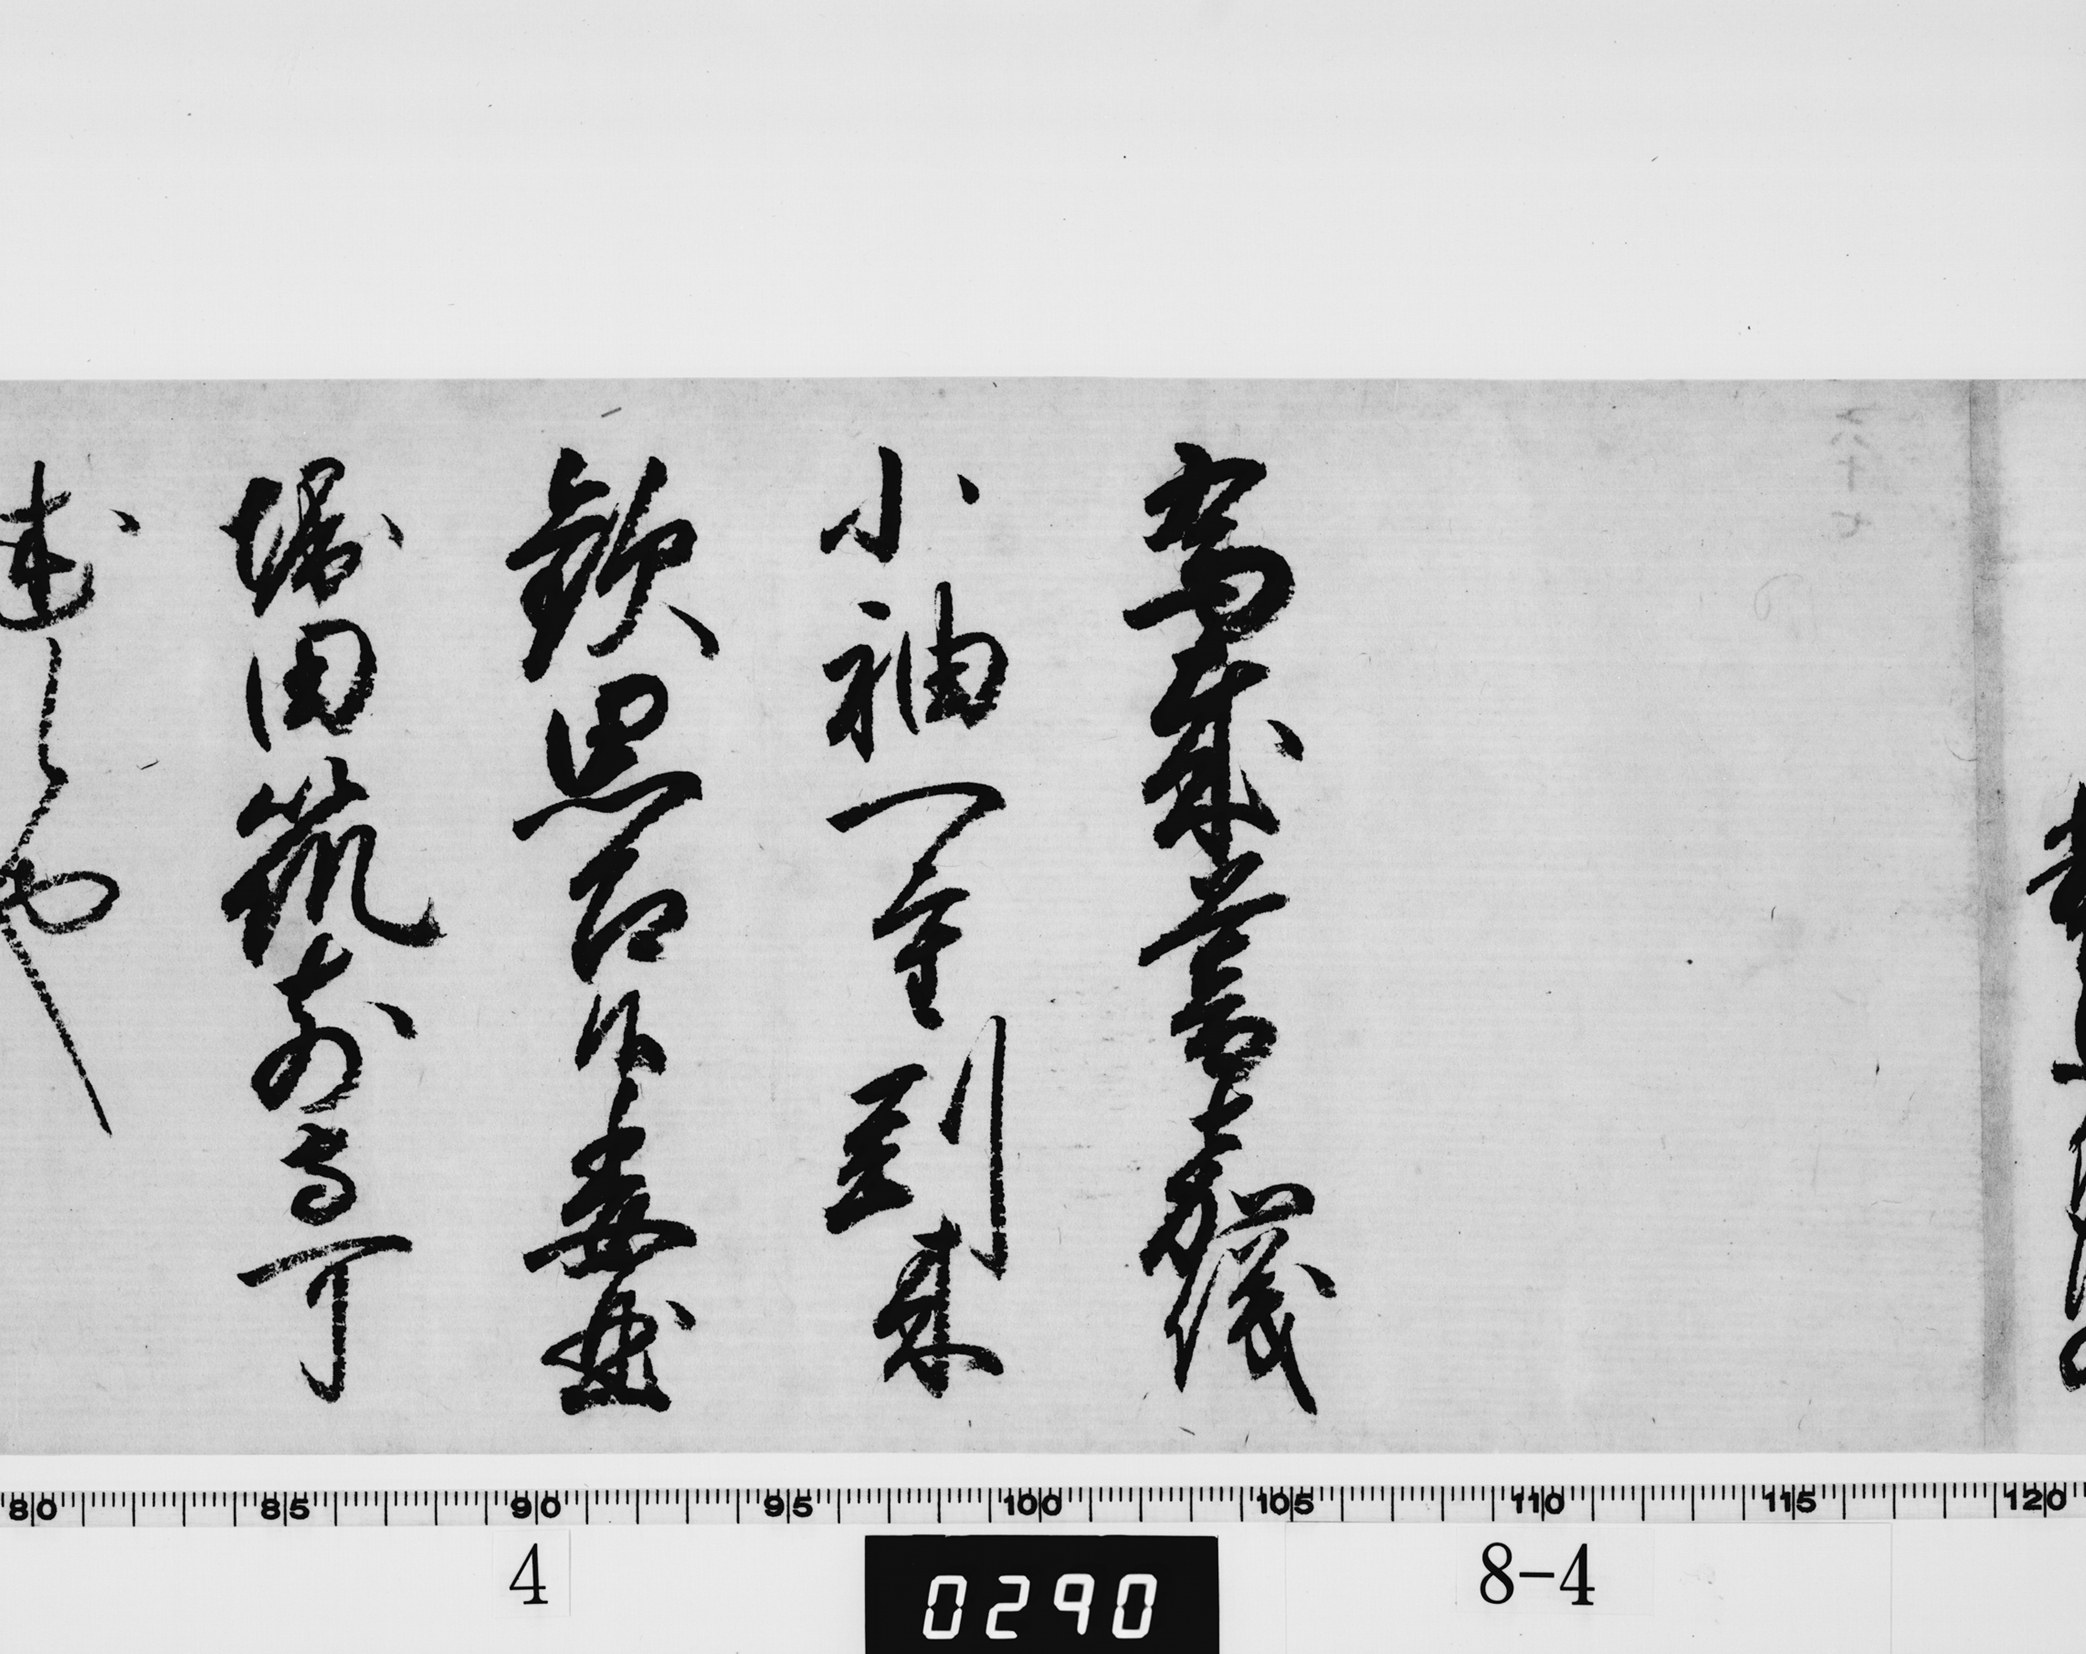 為歳暮之祝儀
小袖一重到来
歓思召候委曲
堀田筑前守可
述候也
80 85 90 95 100 105 110 115 120
4
0290
8-4